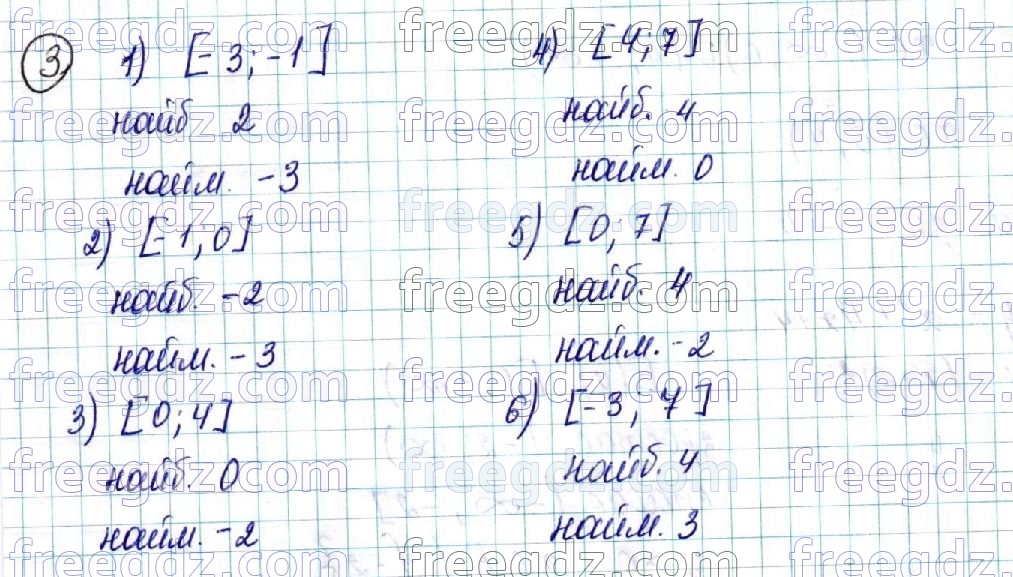 3 1) [-3; -1]
найб 2
найм. -3
2) [-1; 0]
найб. -2
найм. -3
3) [0; 4]
найб. 0
найм. -2
4) [4; 7]
найб. 4
найм. 0
5) [0; 7]
найб. 4
найм. -2
6) [-3; 7]
найб. 4
найм. 3
freegdz.com freegdz.com freegdz.
freegdz.com freegdz.com freegdz.
freegdz.com freegdz.com freegdz.
freegdz.com freegdz.com freegdz.
freegdz.com freegdz.com freegdz.
freegdz.com freegdz.com freegdz.
freegdz.com freegdz.com freegdz.